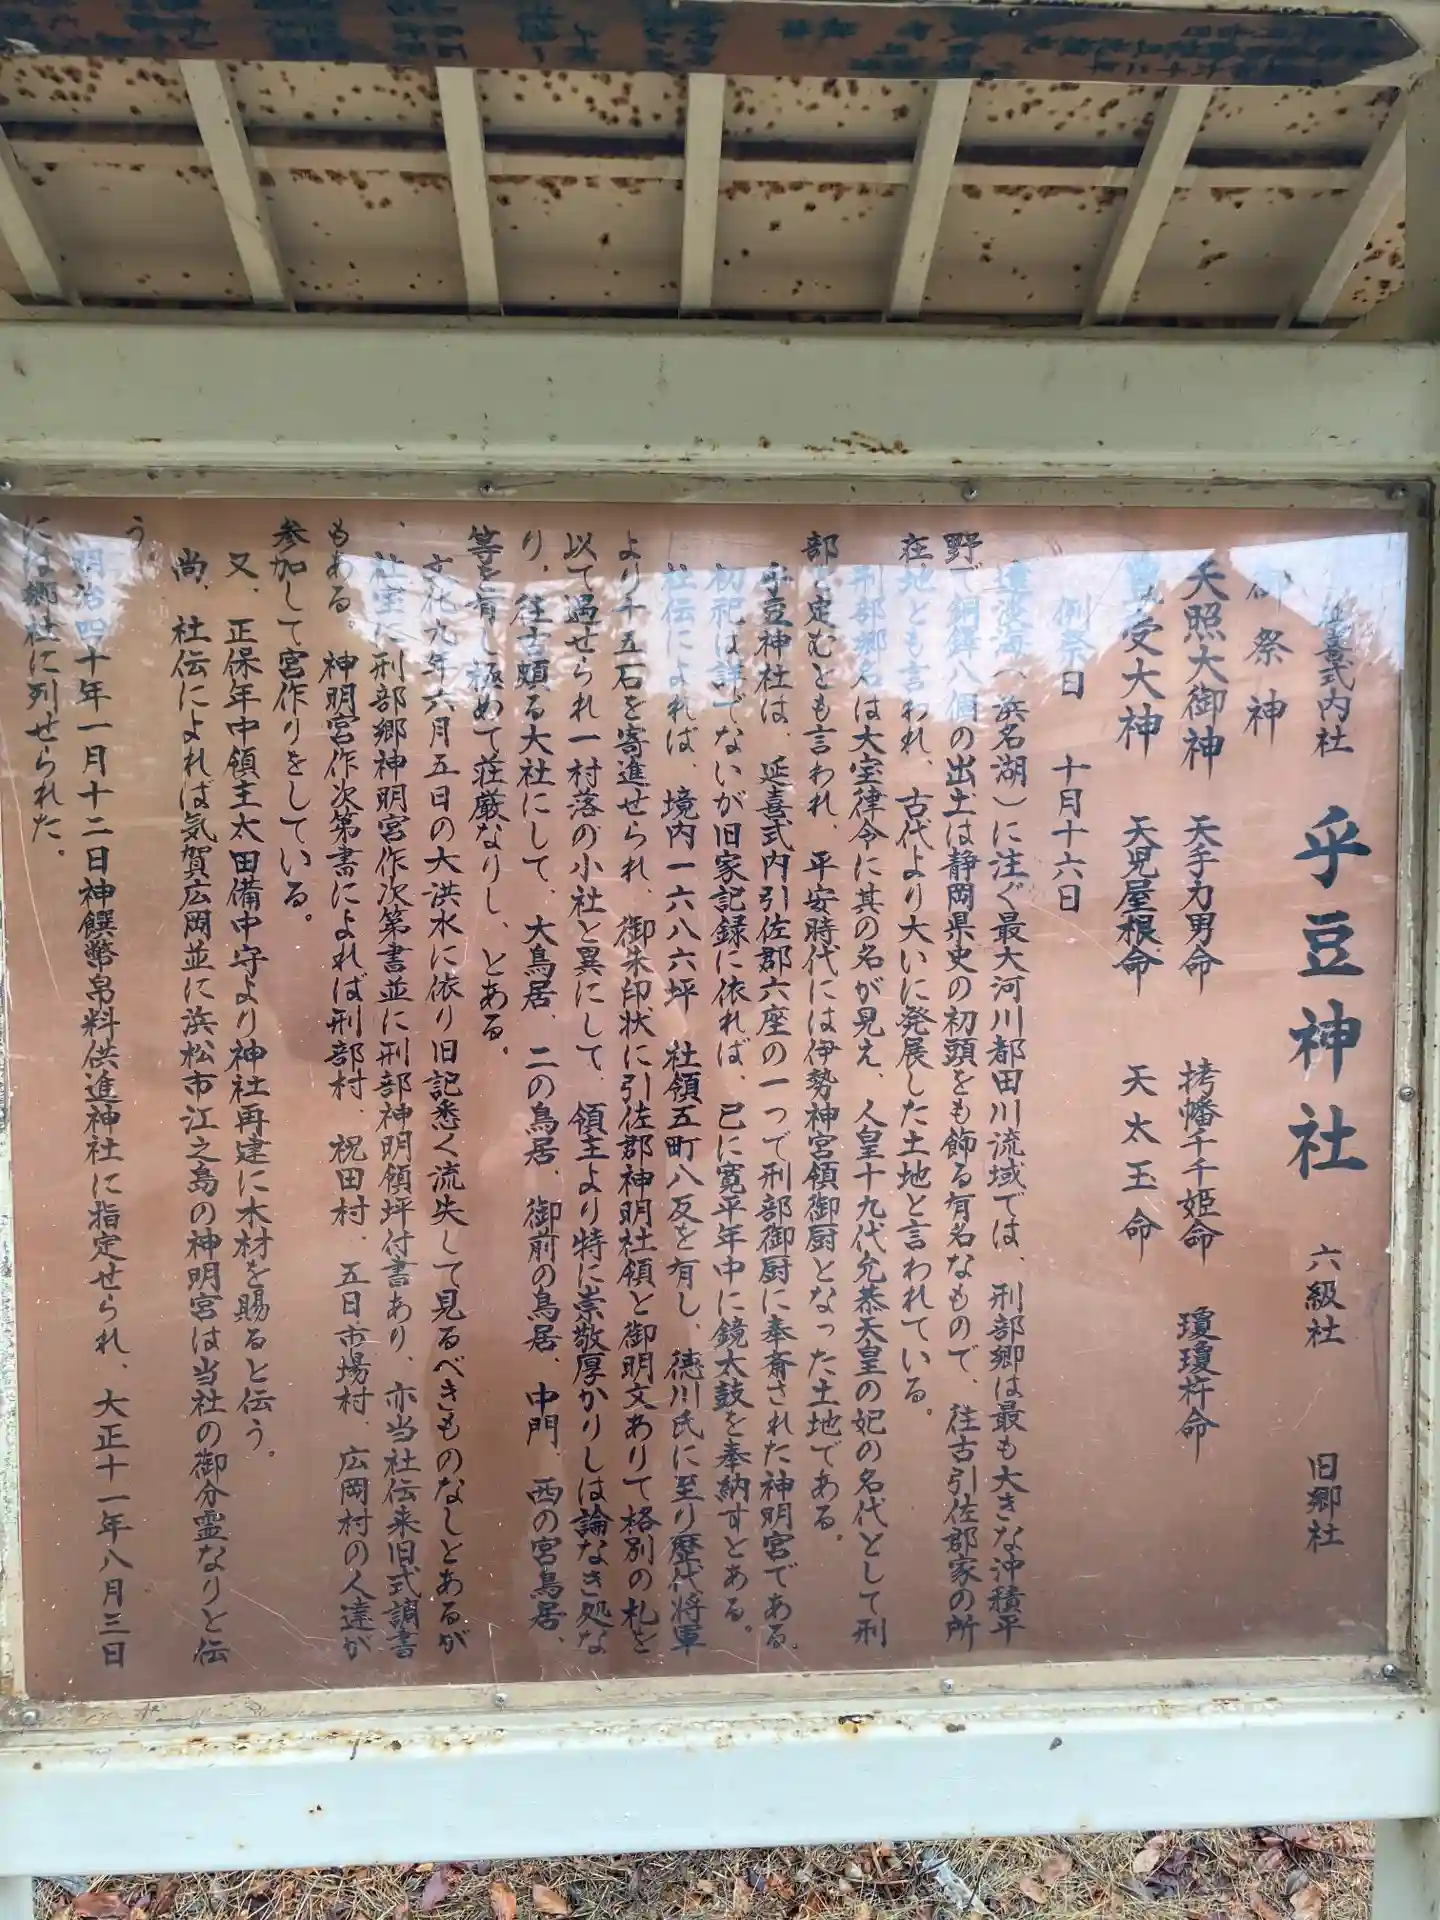 延喜式内社 乎豆神社 六級社 旧郷社
御祭神
天照大御神 天手力男命 栲幡千千姫命 瓊瓊杵命
豊受大神 天児屋根命 天太玉命
例祭日 十月十六日
遠淡海(浜名湖)に注ぐ最大河川都田川流域では、刑部郷は最も大きな沖積平
野で銅鐸八個の出土は静岡県史の初頭をも飾る有名なもので、往古引佐郡家の所
在地とも言われ、古代より大いに発展した土地と言われている。
刑部郷名は大宝律令に其の名が見え、人皇十九代允恭天皇の妃の名代として刑
部と定むとも言われ、平安時代には伊勢神宮領御厨となった土地である。
乎豆神社は、延喜式内引佐郡六座の一つで刑部御厨に奉斎された神明宮である。
初祀は詳でないが旧家記録に依れば、已に寛平年中に鏡太鼓を奉納すとある。
社伝によれば、境内一六八六坪 社領五町八反を有し、徳川氏に至り歴代将軍
より十五石を寄進せられ、御朱印状に引佐郡神明社領と御明文ありて格別の札を
以て過せられ一村落の小社と異にして、領主より特に崇敬厚かりしは論なき処な
り、往古頗る大社にして、大鳥居、二の鳥居、御前の鳥居、中門、西の宮鳥居、
等を有し極めて荘厳なりし、とある。
文化九年六月五日の大洪水に依り旧記悉く流失して見るべきものなしとあるが
、社宝に刑部郷神明宮作次第書並に刑部神明領坪付書あり、亦当社伝来旧式調書
もある。神明宮作次第書によれば刑部村、祝田村、五日市場村、広岡村の人達が
参加して宮作りをしている。
又、正保年中領主太田備中守より神社再建に木材を賜ると伝う。
尚、社伝によれば気賀広岡並に浜松市江之島の神明宮は当社の御分霊なりと伝
う。
明治四十年一月十二日神饌幣帛料供進神社に指定せられ、大正十一年八月三日
には郷社に列せられた。